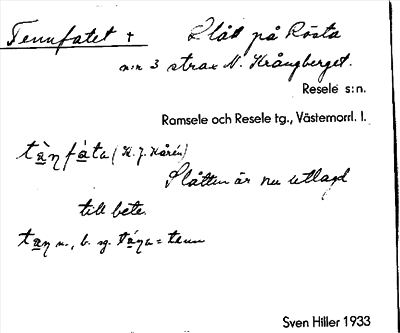 Tennfatet + Slått på Rösta
n:r 3 strax N. Krångberget.
Resele s:n.
Ramsele och Resele tg., Västernorrl. l.
tànfáta (K. J. Kårén)
Slåtten är nu utlagd
till bete.
tan n., b. sg. tána = tenn
Sven Hiller 1933